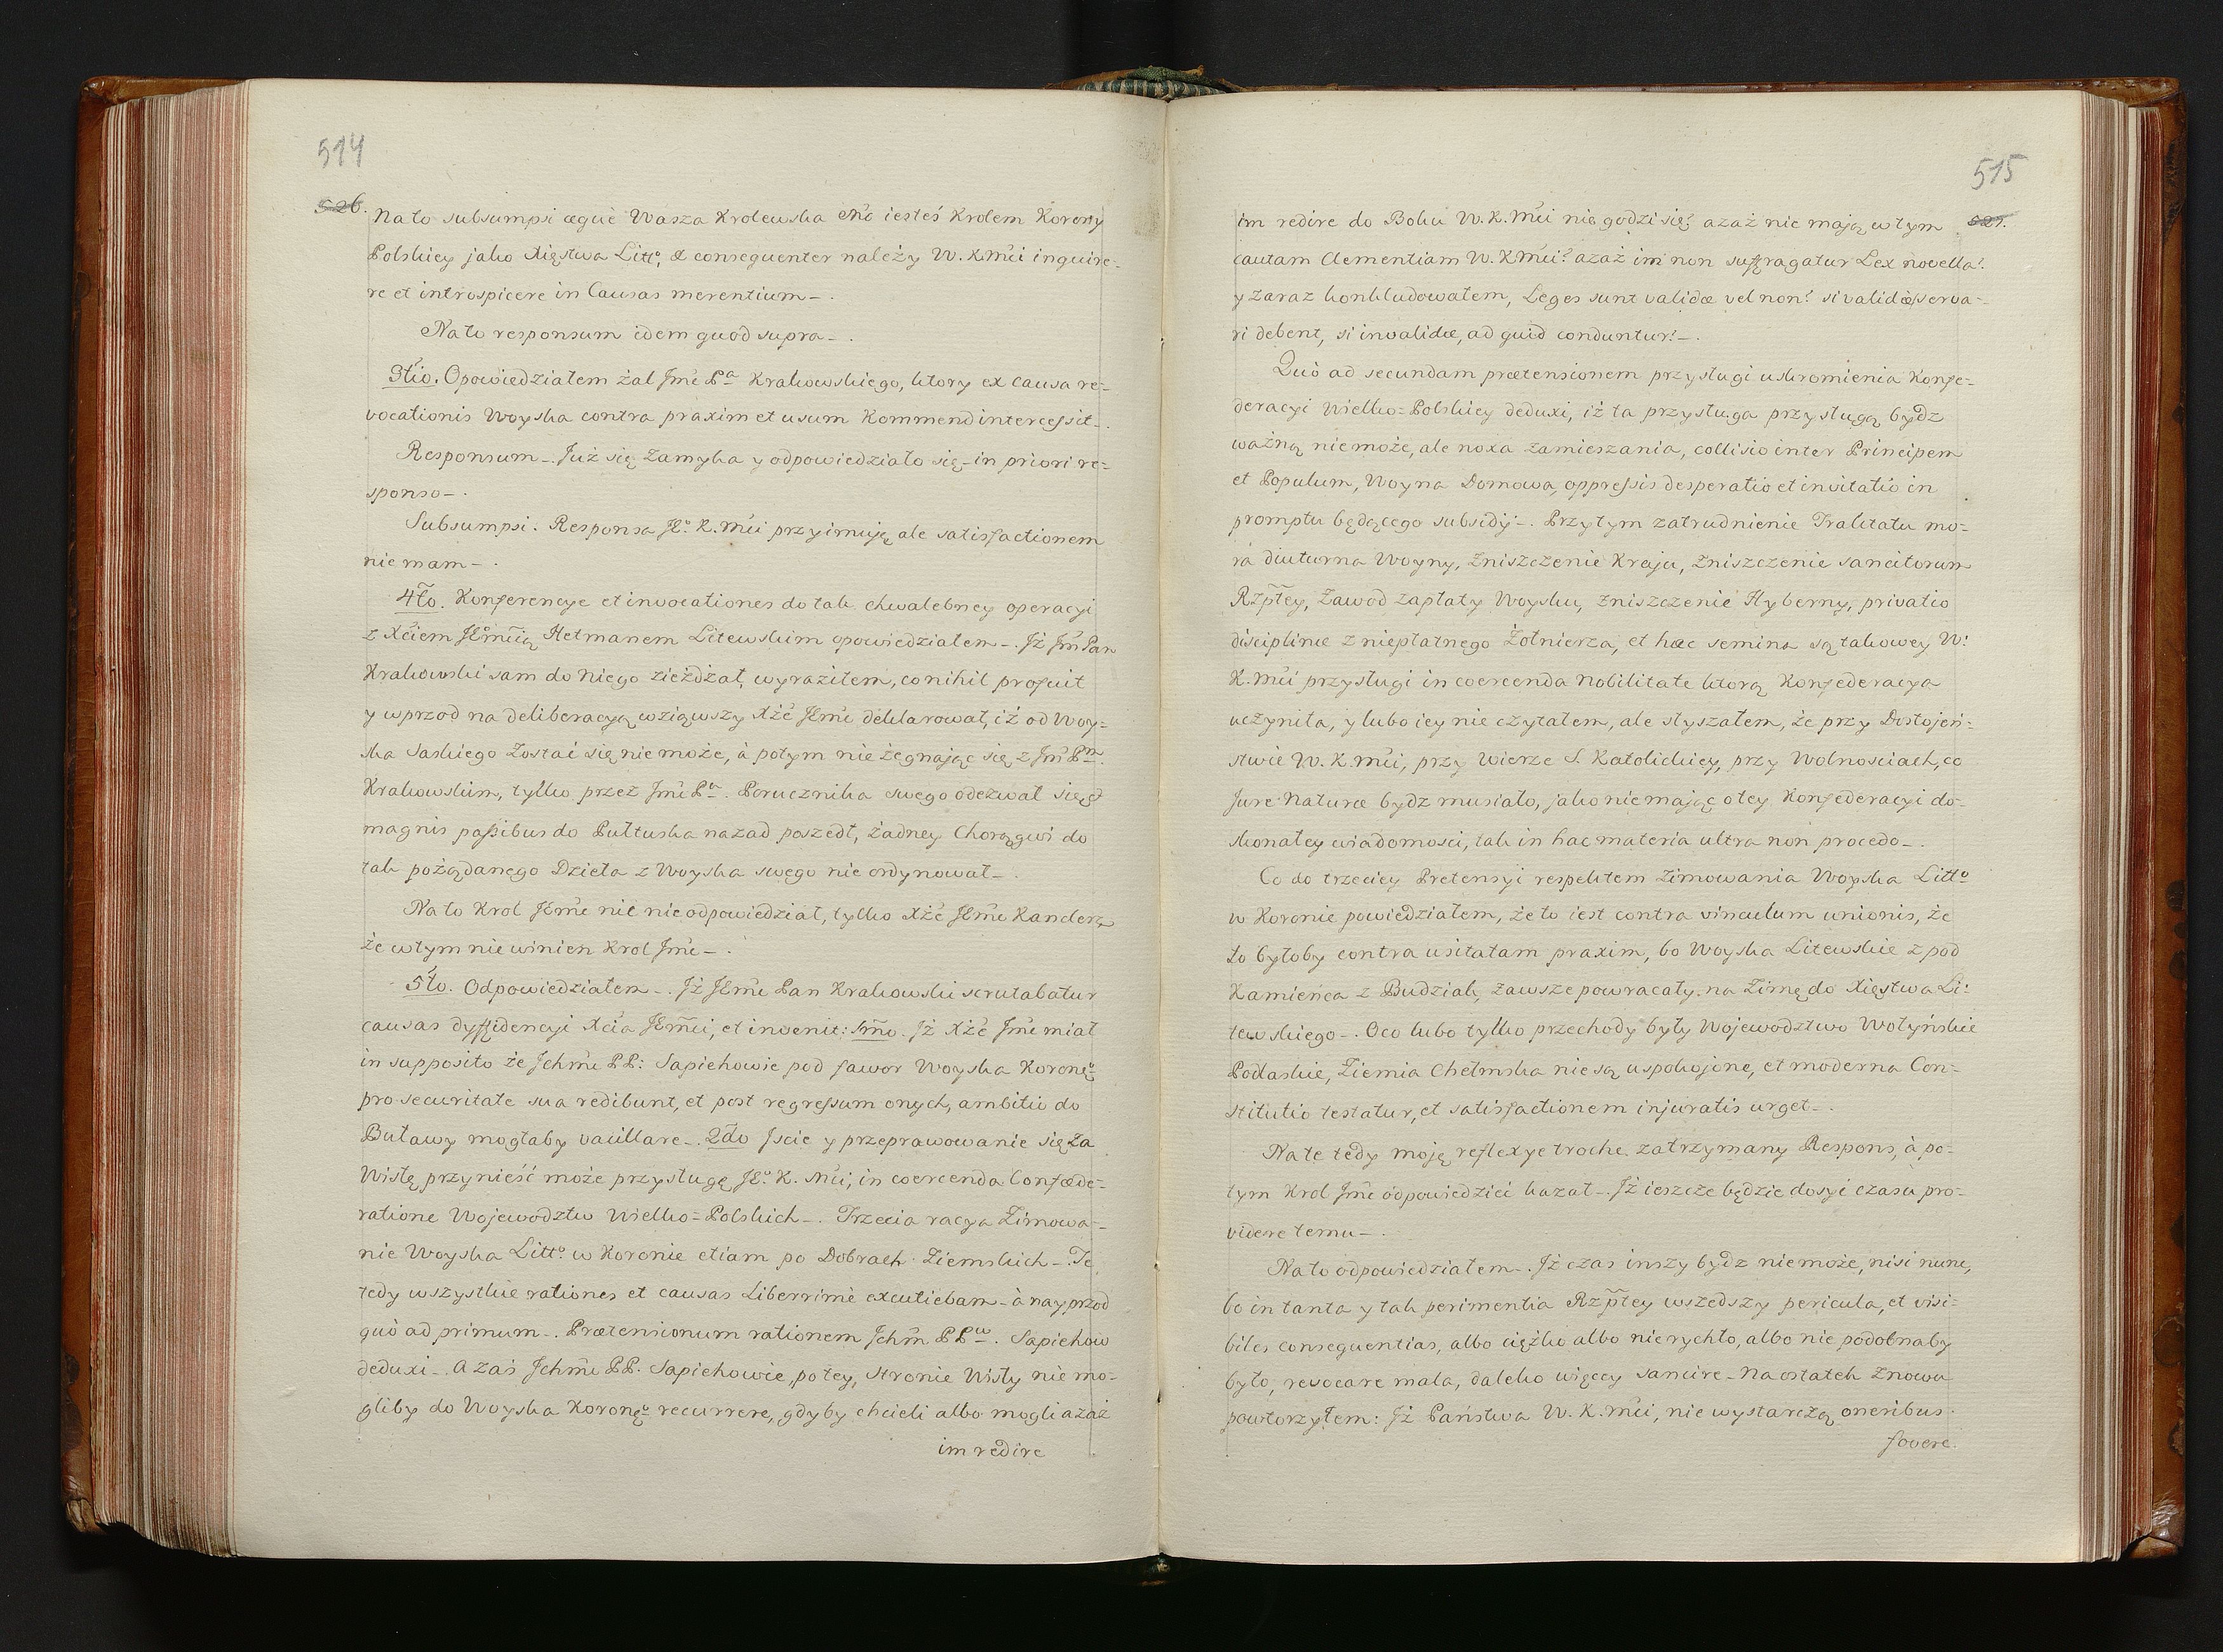 514
526.
Na to subsumpsi æque Wasza Krolewska Mć iesteś Krolem Korony
Polskiey jako Xięstwa Litt°, & consequenter należy W. K. Mći inquire-
re et introspicere in Causas merentium -.
Na to responsum idem quod supra -.
3tio. Opowiedziałem żal Jmć Pa Krakowskiego, ktory ex causa re=
vocationis Woyska contra praxim et usum Kommend intercessit -.
Responsum -. Już się zamyka y odpowiedziało się - in priori re=
sponso -.
Subsumpsi. Responsa JE° K. Mći przyimuję ale satisfactionem
nie mam -.
4to. Konferencye et invocationes do tak chwalebney operacyi
z Xciem JEmcią Hetmanem Litewskim opowiedziałem -. Jż Jm Pan
Krakowski sam do niego zieżdżał, wyraziłem, co nihil profuit
y wprzod na deliberacyą wziąwszy Xżć JEmć deklarował, iż od Woy=
ska Saskiego zostać się nie może, à potym nie żegnając się z Jm Pm.
Krakowskim, tylko przez Jmć Pa. Porucznika swego odezwał się, &
magnis passibus do Pułtuska nazad poszedł, żadney Chorągwi do
tak pożądanego Dzieła z Woyska swego nie ordynował -.
Na to Krol JEmć nic nie odpowiedział, tylko Xżć JEmć Kanclerz,
że w tym nie winien Krol Jmć -.
5to. Odpowiedziałem -. Jż JEmć Pan Krakowski scrutabatur
causas dyffidencyi Xcia JEmci, et invenit: 1mo. Jż Xżć Jmć miał
in supposito że Jchmć PP: Sapiehowie pod fawor Woyska Koronę°
pro securitate sua redibunt, et post regressum onych, ambitio do
Buławy mogłaby vacillare -. 2do Jscie y przeprawowanie się za
Wisłę przynieść może przysługę JE° K. Mći, in coercenda Confæde=
ratione Wojewodztw Wielko=Polskich -. Trzecia racya Zimowa-
nie Woyska Litt° w Koronie etiam po Dobrach Ziemskich -. Te
tedy wszystkie rationes et causas Liberrimè excutiebam - à nayprzod
quò ad primum -. Prætensionum rationem Jchm PPw. Sapiehow
deduxi -. A zaś Jchmć PP. Sapiehowie, po tey, stronie Wisły nie mo-
gliby do Woyska Koronę° recurrere, gdyby chcieli albo mogli azaż
im redire
515
527.
im redire do Boku W. K. Mći nie godzi się? azaż nie mają w tym
cautam Clementiam W. K Mći? azaż im non suffragatur Lex novella?
y zaraz konkludowałem, Leges sunt validæ vel non? si validæ, serva-
ri debent, si invalidæ, ad quid conduntur? -.
Quò ad secundam prætensionem przysługi uskromienia Konfe-
deracyi Wielko=Polskiey deduxi, iż ta przysługa przysługą bydz
ważną nie może, ale noxa zamieszania, collisio inter Principem
et Populum, Woyna Domowa, oppressis desperatio et invitatio in
promptu będącego subsidij -. Przytym zatrudnienie Traktatu mo=
ra diuturna Woyny, zniszczenie Kraju, zniszczenie sancitorum
Rzptey, zawod zapłaty Woysku, zniszczenie Hyberny, privatio
disciplinæ z niepłatnego Żołnierza, et hæc semina są takowey W:
K. Mći przysługi in coercenda Nobilitate ktorą Konfederacya
uczyniła, y lubo iey nie czytałem, ale słyszałem, że przy Dostojeń=
stwie W. K. Mći, przy Wierze S. Katolickiey, przy Wolnosciach, co
Jure Naturæ bydz musiało, jako nie mając o tey Konfederacyi do-
skonałey wiadomosci, tak in hac materia ultra non procedo -.
Co do trzeciey Pretensyi respektem zimowania Woyska Litt°
w Koronie powiedziałem, że to iest contra vinculum unionis, że
to byłoby contra usitatam praxim, bo Woyska Litewskie z pod
Kamieńca z Budziak, zawsze powracały na Zimę do Xięstwa Li=
tewskiego -. Oco lubo tylko przechody były Wojewodztwo Wołyńskie
Podlaskie, Ziemia Chełmska nie są uspokojone, et moderna Con=
stitutio testatur, et satisfactionem injuratis urget -.
Na te tedy moję reflexye troche zatrzymany Respons, à po-
tym Krol Jmć odpowiedzieć kazał -. Jż ieszcze będzie dosyć czasu pro-
videre temu -.
Na to odpowiedziałem -. Jż czas inszy bydz nie może, nisi nunc,
bo in tanta y tak perimentia Rzptey wszedszy pericula, et visi=
biles consequentias, albo ciężko albo nierychło, albo nie podobnaby
było, revocare mala, daleko więcey sancire - Na ostatek znowu
powtorzyłem: Jż Państwa W. K. Mći, nie wystarczą oneribus
fovere.